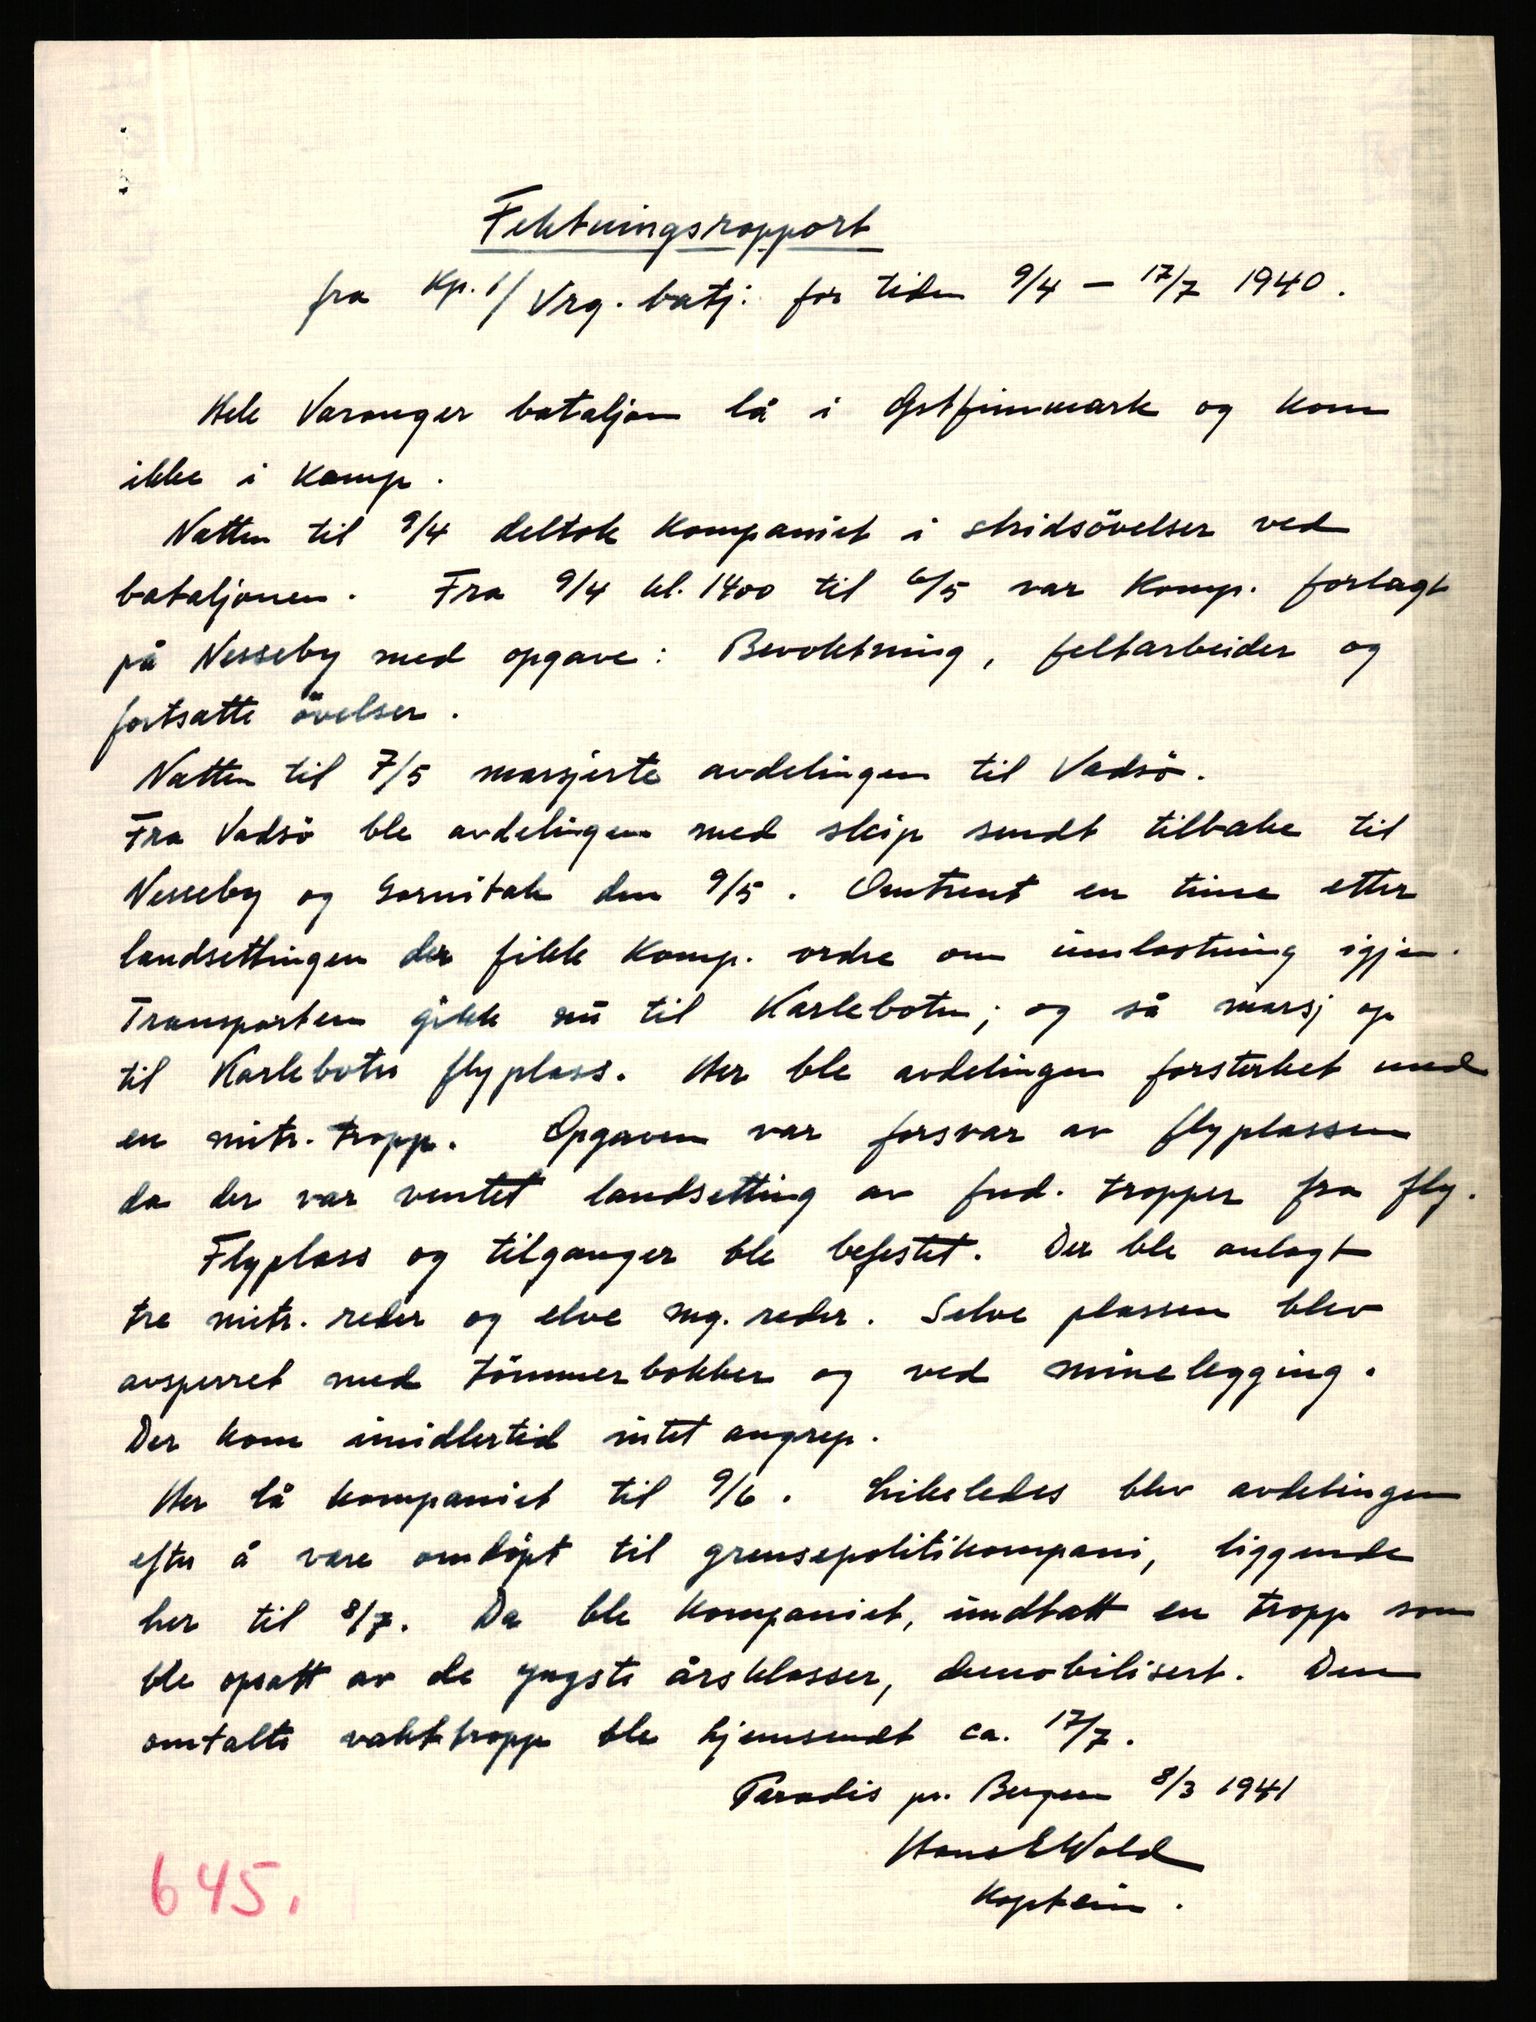 Fektningsrapport
fra Kp. 1/Vrg. batj. for tiden 9/4 – 17/7 1940.
Hele Varanger bataljon lå i Østfinnmark og kom
ikke i kamp.
Natten til 9/4 deltok kompaniet i stridsövelser ved
bataljonen. Fra 9/4 kl. 1400 til 6/5 var Komp. forlagt
på Nesseby med opgave: Bevoktning, feltarbeider og
fortsatte övelser.
Natten til 7/5 marsjerte avdelingen til Vadsö.
Fra Vadsö ble avdelingen med skip sendt tilbake til
Nesseby og Gornitak den 9/5. Omtrent en time etter
landsettingen der fikk Komp. ordre om innlastning igjen.
Transporten gikk nu til Karlebotn; og så marsj op
til Karlebotn flyplass. Her ble avdelingen forsterket med
en mitr. tropp. Opgaven var forsvar av flyplassen
da der var ventet landsetting av fnd. tropper fra fly.
Flyplass og tilganger ble befestet. Der ble anlagt
tre mitr. reder og elve mg. reder. Selve plassen blev
avsperret med tömmerbokker og ved minelegging.
Der kom imidlertid intet angrep.
Her lå kompaniet til 9/6. Likeledes blev avdelingen
efter å være omdöpt til grensepolitikompani, liggende
her til 8/7. Da ble kompaniet, undtatt en tropp som
ble opsatt av de yngste årsklasser, demobilisert. Den
omtalte vakttropp ble hjemsendt ca. 17/7.
Paradis pr. Bergen 8/3 1941
Hans E Wold
Kaptein.
645.